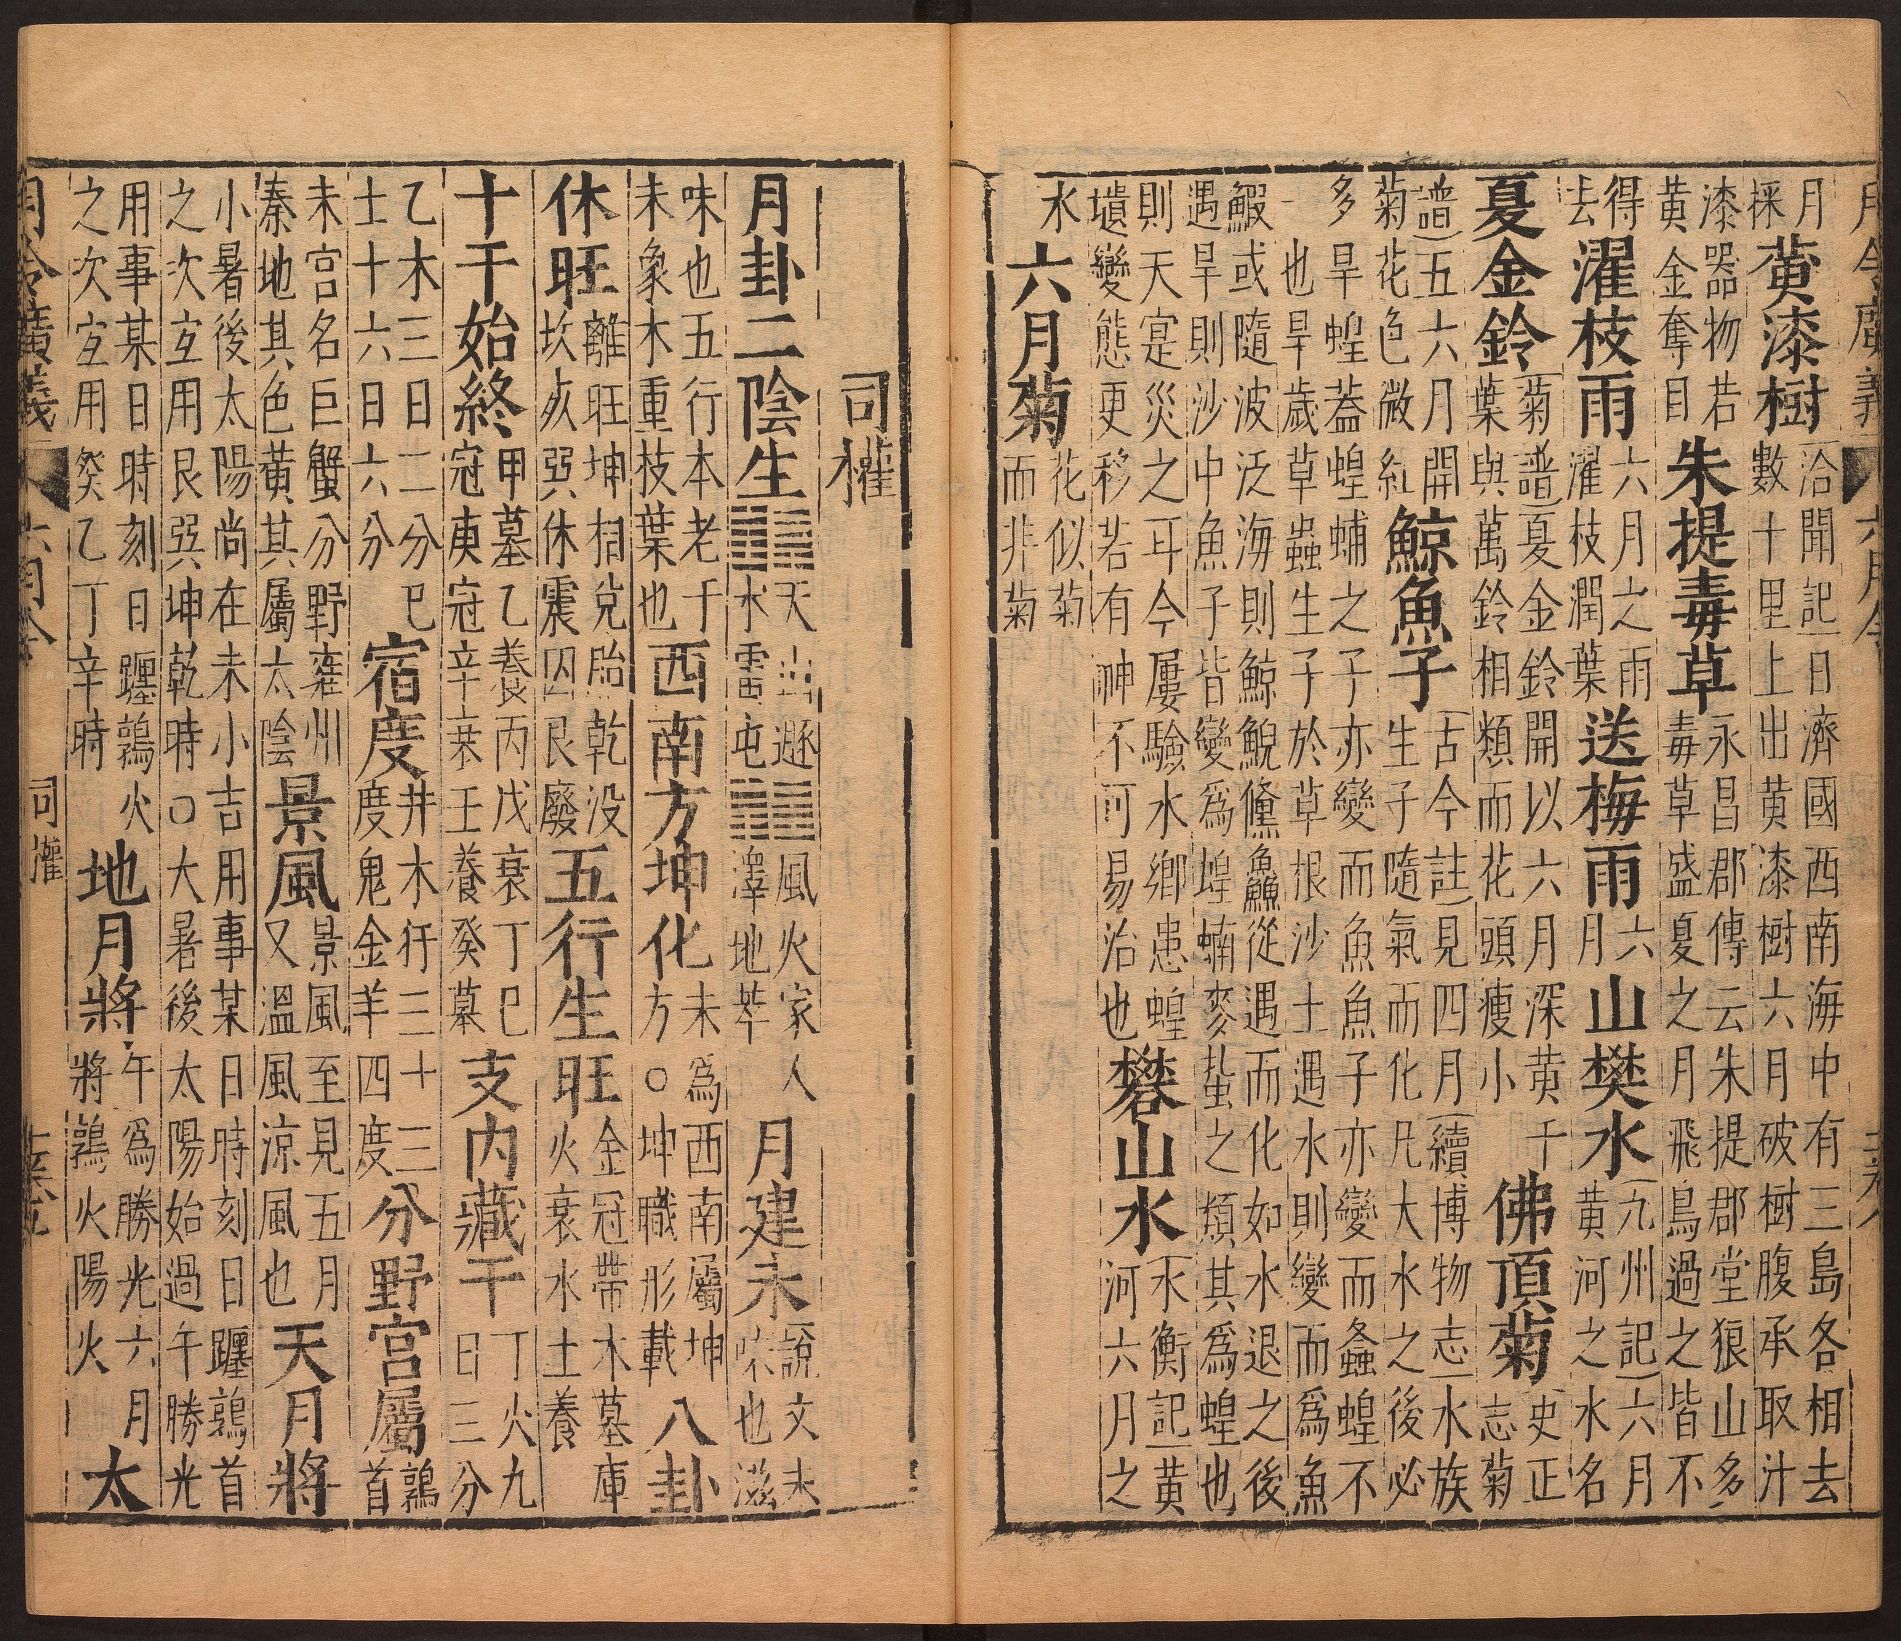 月令廣義 六月令
月
採
黄漆樹
(洽聞記)日濟國西南海中有三島各相去
數十里上出黄漆樹六月破樹腹承取汁
漆器物若
黄金奪目
朱提毒草
永昌郡傳云朱提郡堂狼山多
毒草盛夏之月飛鳥過之皆不
得
去
濯枝雨
六月之雨
濯枝潤葉
送梅雨
六
月
山樊水
(九州記)六月
黄河之水名
夏金鈴
(菊譜)夏金鈴開以六月深黄千
葉與萬鈴相類而花頭瘦小
佛頂菊
史正
志菊
譜)五六月開
菊花色微紅
鯨魚子
(古今註)見四月(續博物志)水族
生子隨氣而化凡大水之後必
多旱蝗蓋蝗蝻之子亦變而魚魚子亦變而螽蝗不
一也旱歲草蟲生子於草根沙土遇水則變而爲魚
鰕或隨波泛海則鯨鯢鯈鱻從遇而化如水退之後
遇旱則沙中魚子皆變爲蝗蝻麥蚻之類其爲蝗也
則天寔災之耳今屢驗水鄉患蝗
壝變態更移若有神不可易治也
礬山水
(水衡記)黄
河六月之
水
六月菊
花似菊
而非菊
司權
月卦二陰生
䷠天山遯 ䷤風火家人
水雷屯 澤地萃
月建未
(説文未
味也滋
味也五行本老千
未象木重枝葉也
西南方坤化
未爲西南屬坤
方○坤職形載
八卦
休旺
離旺坤相兌胎乾没
坎死巽休震囚艮廢
五行生旺
金冠帶木墓庫
火衰水土養
十干始終
甲墓乙養丙戊衰丁己
冠庚冠辛衰壬養癸墓
支内藏干
丁火九
日三分
乙木三日二分巳
土十六日六分
宿度
井木犴三十三
度鬼金羊四度
分野宮屬
鶉
首
未宮名巨蟹分野雍州
秦地其色黄其屬太陰
景風
景風至見五月
又溫風涼風也
天月將
小暑後太陽尚在未小吉用事某日時刻日躔鶉首
之次宜用艮巽坤乾時○大暑後太陽始過午勝光
用事某日時刻日躔鶉火
之次宜用癸乙丁辛時
地月將
午爲勝光六月
將鶉火陽火
太
月令廣義 六月令 司權